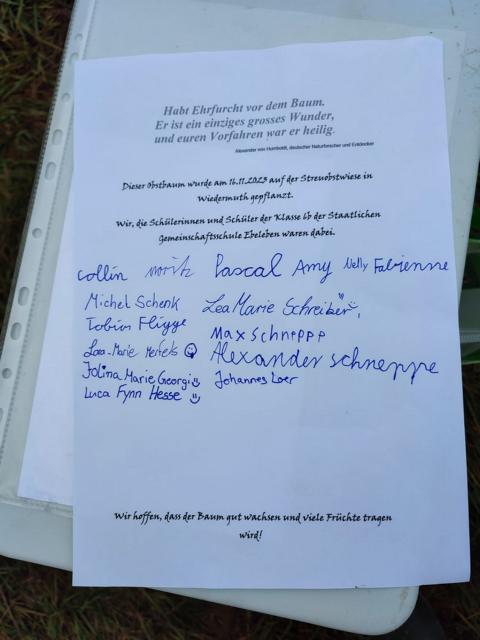 Habt Ehrfurcht vor dem Baum.
Er ist ein einziges grosses Wunder,
und euren Vorfahren war er heilig.
Alexander von Humboldt, deutscher Naturforscher und Entdecker
Dieser Obstbaum wurde am 16.11.2023 auf der Streuobstwiese in
Wiedermuth gepflanzt.
Wir, die Schülerinnen und Schüler der Klasse 6b der Staatlichen
Gemeinschaftsschule Ebeleben waren dabei.
Collin Moritz Pascal Amy Nelly Fabienne
Michel Schenk Lea Marie Schreiber
Tobias Flügge Max Schneppe
Lara-Marie Alexander Schneppe
Jolina Marie Georgi Johannes Loer
Luca Fynn Hesse
Wir hoffen, dass der Baum gut wachsen und viele Früchte tragen
wird!